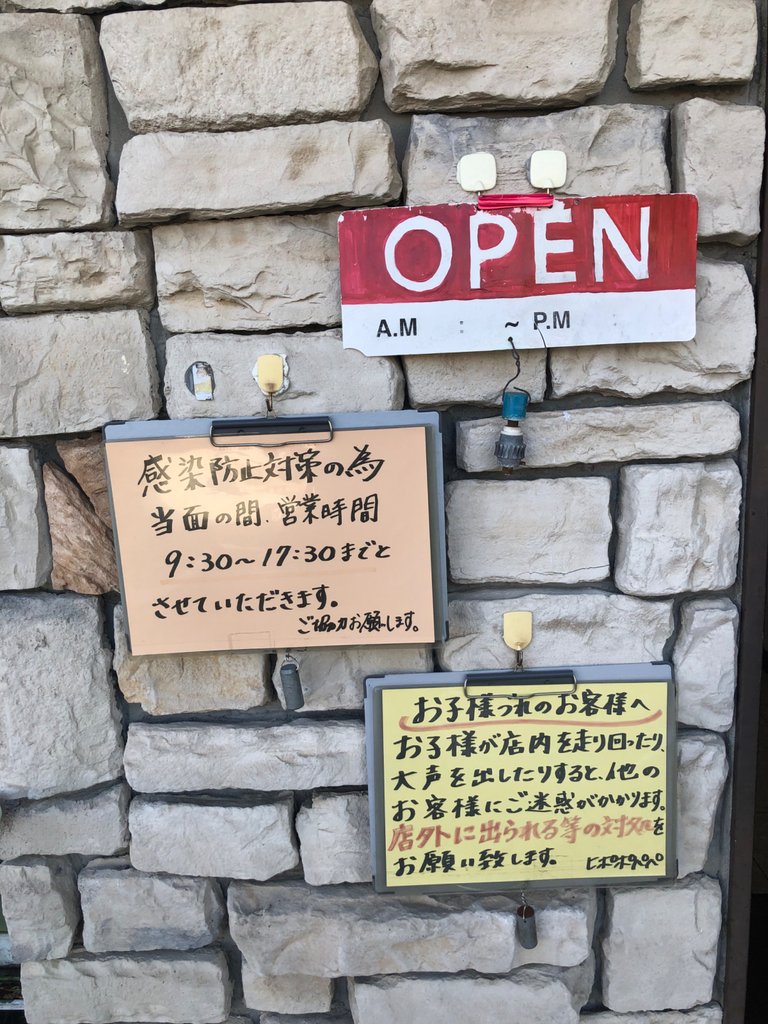 OPEN
A.M : ~ P.M
感染防止対策の為
当面の間、営業時間
9:30〜17:30までと
させていただきます。
ご協力お願いします。
お子様づれのお客様へ
お子様が店内を走り回ったり、
大声を出したりすると、他の
お客様にご迷惑がかかります。
店外に出られる等の対処を
お願い致します。 ヒポポタペペ